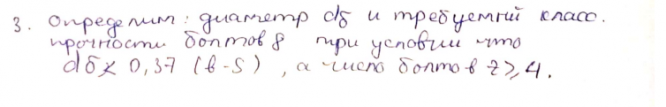 3. Определим: диаметр dб и требуемый класс.
прочности болтов 8 при условии что
dб ≤ 0,37 (b-S), а число болтов z ≥ 4.